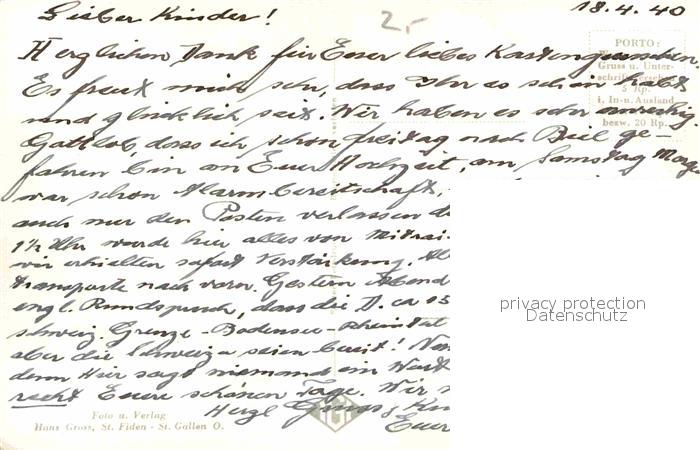 Lieber Kinder!
18.4.40
2.-
Herzlichen Dank für Euer liebes Kartengrüsschen.
Es freut mich sehr, dass Ihr es schön habt
und glücklich seit. Wir haben es sehr
Gottlob, dass ich schon freitag nach Biel ge-
fahren bin an Euer Hochzeit, am Samstag Morgen
war schon Alarmbereitschaft,
auch nur den Posten verlassen
1½ Uhr wurde hier alles von Mitrai-
wir erhielten sofort Verstärkung. Al
transporte nach vorn. Gestern Abend
engl. Rundspruch, dass die D. ca
schweiz. Grenze - Bodensee - Rheintal
aber die Schweizer seien bereit!
denn Hier sagt niemand ein Wort
recht Euere schönen Tage. Wir
Herzl Gruss & Küs
Euer
PORTO:
Gruss u. Unter-
schrift
5 Rp.
i. In- u. Ausland
bezw. 20 Rp.
Foto u. Verlag
Hans Gross, St. Fiden - St. Gallen O.
privacy protection
Datenschutz